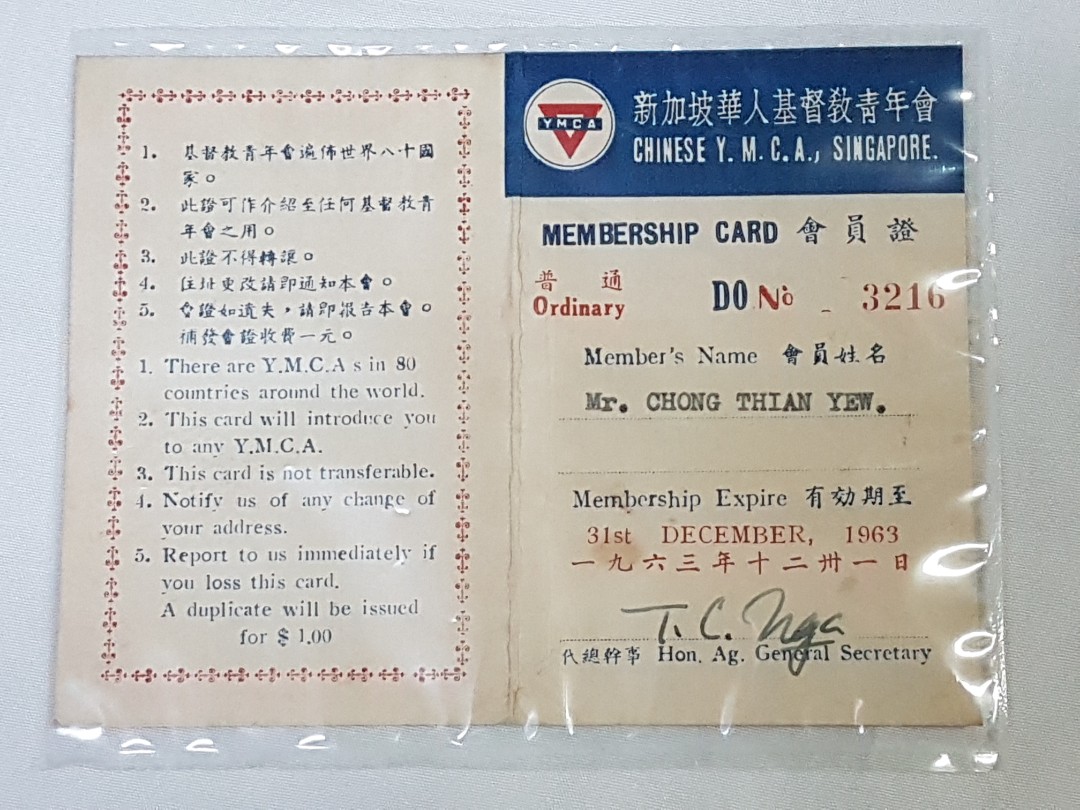 1. 基督教青年會遍佈世界八十國
家。
2. 此證可作介紹至任何基督教青
年會之用。
3. 此證不得轉讓。
4. 住址更改請即通知本會。
5. 會證如遺失，請即报告本會。
補發會證收費一元。
1. There are Y.M.C.A s in 80
countries around the world.
2. This card will introduce you
to any Y.M.C.A.
3. This card is not transferable.
4. Notify us of any change of
your address.
5. Report to us immediately if
you loss this card.
A duplicate will be issued
for $ 1.00
YMCA
新加坡華人基督敎青年會
CHINESE Y. M. C. A., SINGAPORE.
MEMBERSHIP CARD 會員證
普通
Ordinary
DO No 3216
Member's Name 會員姓名
Mr. CHONG THIAN YEW.
Membership Expire 有効期至
31st DECEMBER, 1963
一九六三年十二卅一日
T. C. Nga
代總幹事 Hon. Ag. General Secretary